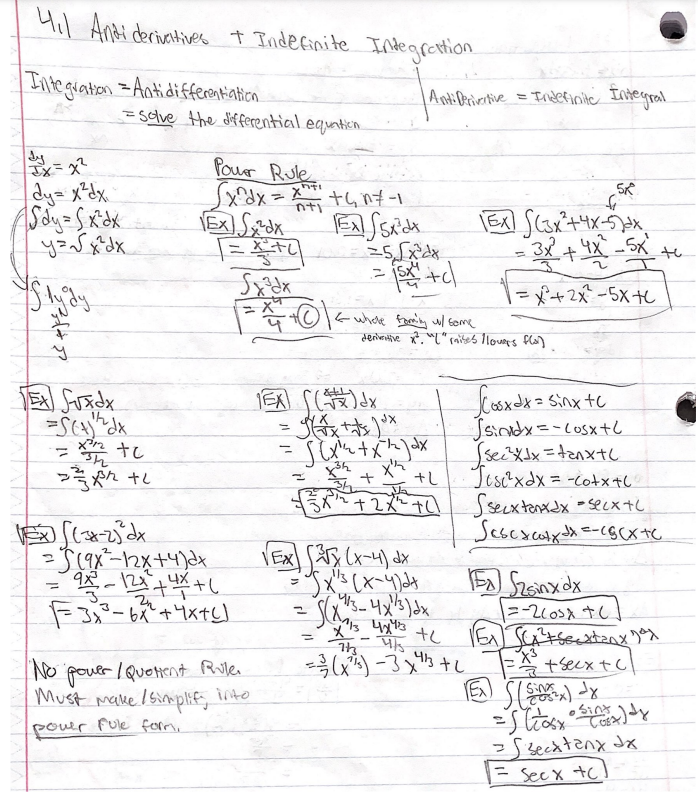 4.1 Antiderivatives + Indefinite Integration
Integration = Antidifferentiation
= solve the differential equation
AntiDerivative = Indefinite Integral
dy/dx = x²
dy = x²dx
∫dy = ∫x²dx
y = ∫x²dx
∫1y⁰dy
y¹/1
y
Power Rule
∫xⁿdx = xⁿ⁺¹/n+1 + C, n ≠ -1
Ex ∫x²dx
= x³/3 + C
∫x³dx
= x⁴/4 + C ← whole family w/ same
derivative x³. "C" raises/lowers f(x)
Ex ∫5x³dx
= 5∫x³dx
= 5x⁴/4 + C
5x⁰
Ex ∫(3x²+4x-5)dx
= 3x³/3 + 4x²/2 - 5x¹/1 + C
= x³+2x²-5x+C
Ex ∫√x dx
= ∫(x)^1/2 dx
= x^3/2 / 3/2 + C
= 2/3 x^3/2 + C
Ex ∫(x+1/√x) dx
= ∫(x/√x + 1/√x) dx
= ∫(x^1/2 + x^-1/2) dx
= x^3/2 / 3/2 + x^1/2 / 1/2 + C
= 2/3 x^3/2 + 2x^1/2 + C
∫cosxdx = sinx+C
∫sinxdx = -cosx+C
∫sec²xdx = tanx+C
∫csc²xdx = -cotx+C
∫secxtanxdx = secx+C
∫cscxcotxdx = -cscx+C
Ex ∫(3x-2)²dx
= ∫(9x²-12x+4)dx
= 9x³/3 - 12x²/2 + 4x/1 + C
= 3x³-6x²+4x+C
No power/Quotient Rule.
Must make/simplify into
power rule form.
Ex ∫³√x (x-4) dx
= ∫x^1/3 (x-4)dx
= ∫(x^4/3 - 4x^1/3)dx
= x^7/3 / 7/3 - 4x^4/3 / 4/3 + C
= 3/7(x^7/3) - 3x^4/3 + C
Ex ∫2sinxdx
= -2cosx + C
Ex ∫(x²+secxtanx)dx
= x³/3 + secx + C
Ex ∫(sinx/cos²x) dx
= ∫(1/cosx · sinx/cosx) dx
= ∫secxtanx dx
= secx + C